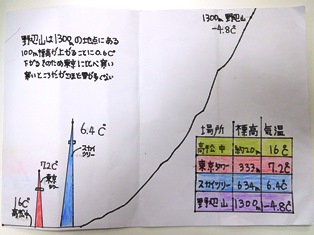 1300m 野辺山
-4.8℃
野辺山は1300mの地点にある
100m標高が上がるごとに0.6℃
下がるそのため東京に比べ寒い
寒いところだがさほど雪が多くない
6.4℃
スカイツリー
7.2℃
東京タワー
16℃
高松中
場所 標高 気温
高松中 約20m 16℃
東京タワー 333m 7.2℃
スカイツリー 634m 6.4℃
野辺山 1300m -4.8℃